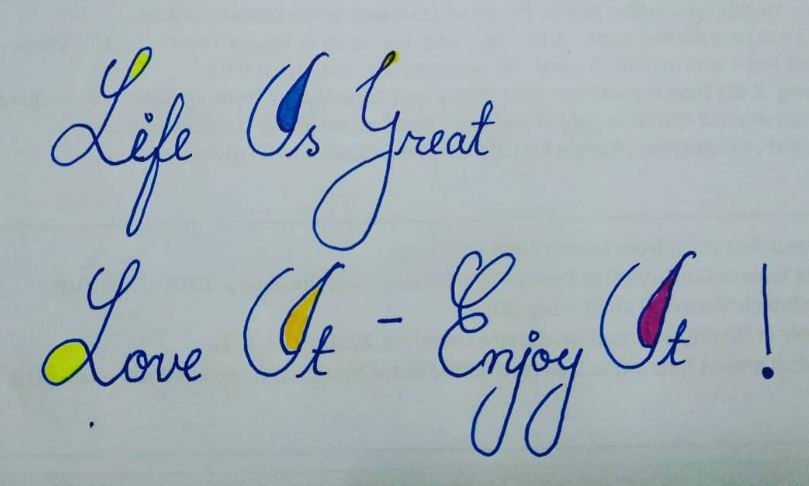 Life Is Great
Love It - Enjoy It !